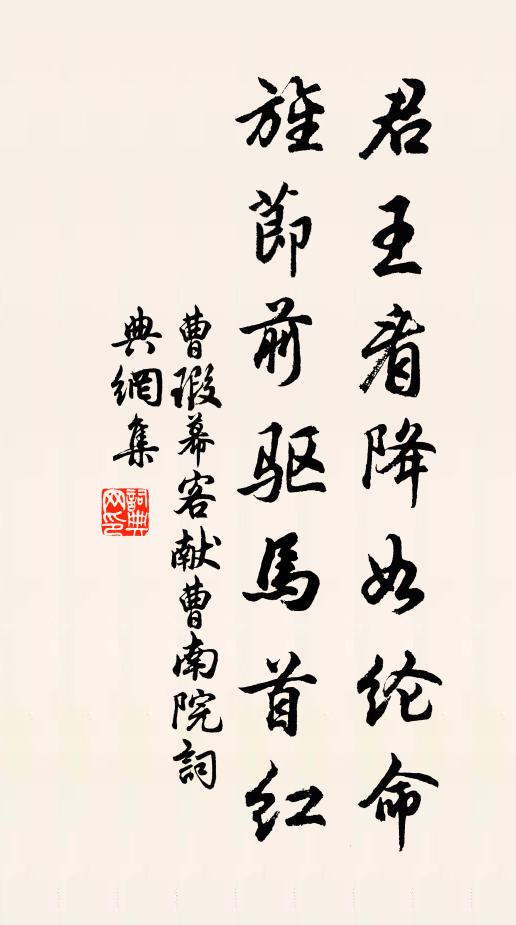 君王看降如纶命
旌節前驱馬首红
曹瑕幕客献曹南院詞
典網集
詞典网印